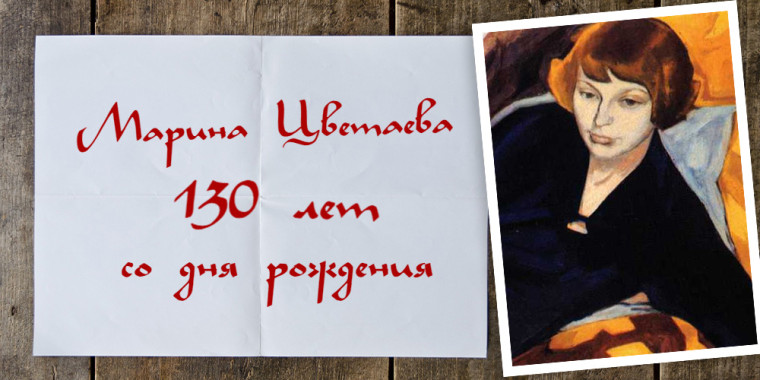 Марина Цветаева
130 лет
со дня рождения